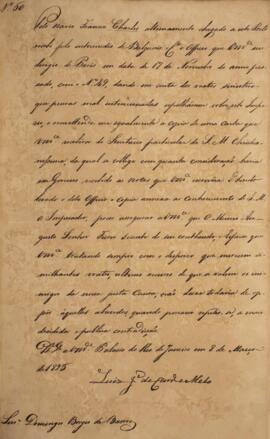 Nº 50
Pelo Navio Francez Charles ultimamente chegado a este Porto
recebi por intermedio de Belfrage Cª o Officio que VMcê me
dirigio de Pariz em data de 17 de Novembro do anno passa-
do, com o Nº 49, dando em conta dos boatos sinistros
que pessoas mal intencionadas espalhavam sobre este Impe-
rio, e remettendo-me igualmente a copia de uma carta que
VMcê recebeo do Secretario particular de S. M. Christia-
nissima, da qual se collige com quanta consideração havia
esse Governo recebido as notas que VMcê escrevia. E ten-
do levado o dito Officio e Copia annexa ao conhecimento de S. M.
o Imperador, posso assegurar a VMcê que O Mesmo Au-
gusto Senhor Ficou sciente do seu conteudo, e espera que
VMcê tratando sempre com o desprezo que merecem si-
milhantes boatos, ultimo recurso de que se valem os ini-
migos da nossa justa Causa, não deixe todavia de op-
pôr áquelles absurdos quando possam repetir-se, a mais
decidida e publica contradição.
Ds. Ge. a VMcê. Palacio do Rio de Janeiro em 8 de Março
de 1825
Luiz Jé de Carvo e Mello
Senr. Domingos Borges de Barros